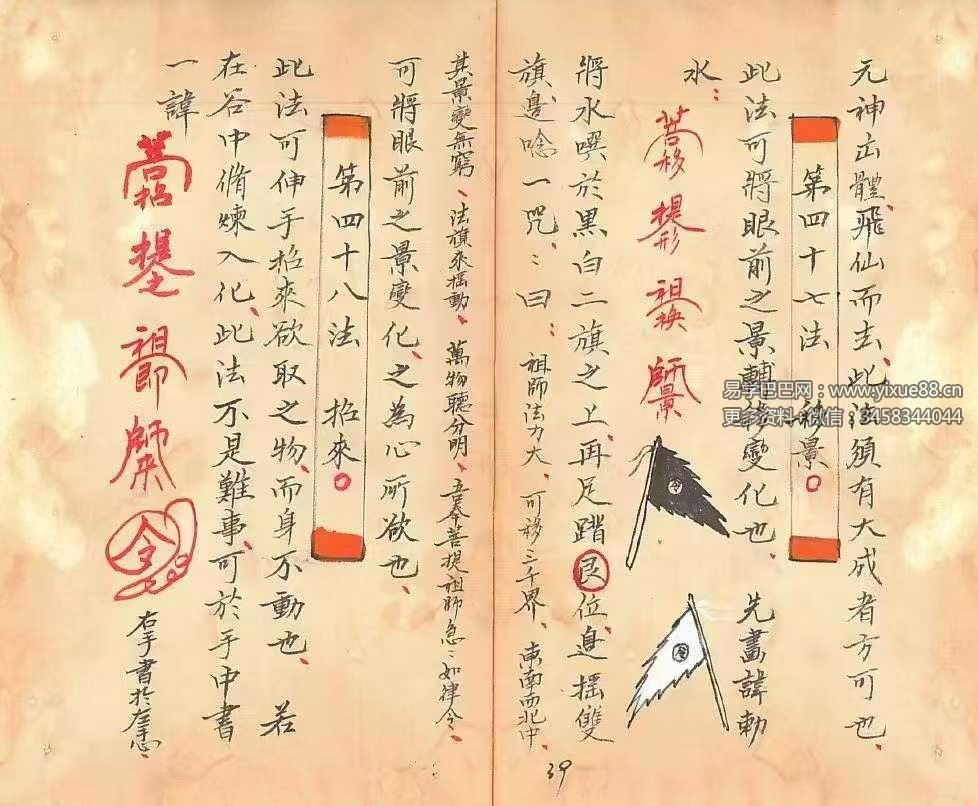 元神出體、飛仙而去、此法須有大成者方可也、
第四十七法 移景○
此法可將眼前之景轉移變化也、先畫諱勅
水：
菩移 提形 祖換 師景
將水噀於黑白二旗之上、再足踏艮位、邊搖雙
旗邊唸一咒：曰：祖師法力大、可移三千界、東南西北中、
其景變無窮、法旗來搖動、萬物聽分明、吾奉菩提祖師急：如律令、
可將眼前之景變化、之為心所欲也、
第四十八法 招來○
此法可伸手招來欲取之物、而身不動也、若
在谷中脩煉入化、此法不是難事、可於手中書
一諱
菩招 提之 祖即 師來 令
右手書於左手心、
39
易学巴巴网：www.yixue88.cn
更多资料+微信：3458344044